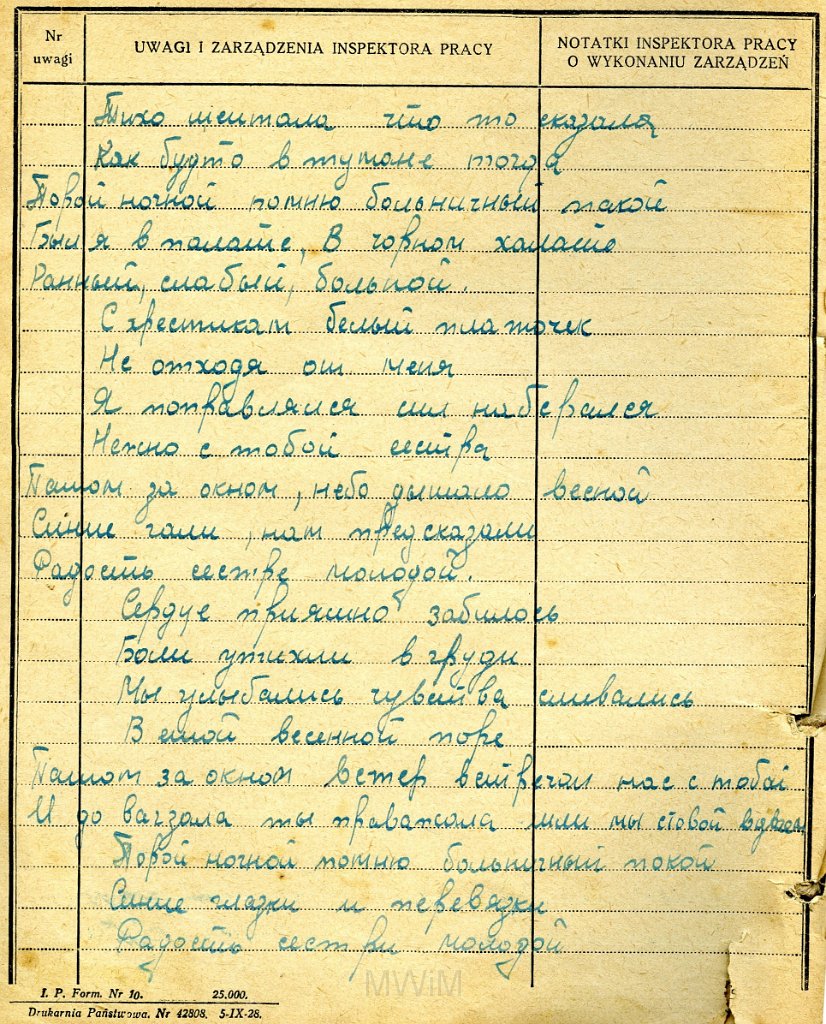 Nr uwagi
UWAGI I ZARZĄDZENIA INSPEKTORA PRACY
NOTATKI INSPEKTORA PRACY
O WYKONANIU ZARZĄDZEŃ
Тихо шептала что то сказала
Как будто в тумане тогда
Порой ночной помню больничный покой
Был я в палате, в чорном халате
Ранный, слабый, больной.
С хрестикам белый платочек
Не отходя от меня
Я поправлялся сил наберался
Нежно с тобой сестра
Патом за окном, небо дышало весной
Синие гали, нам предсказали
Радость сестре молодой.
Сердце приятно забилось
Боли утихли в груди
Мы улыбались чувства сливались
В этой весенной поре
Патом за окном ветер встречал нас с тобой
И до вагзала ты праважала шли мы с товой вдвоем
Порой ночной помню больничный покой
Синие глазки и перевязки
Радость сестри молодой
MWiM
I. P. Form. Nr 10. 25.000.
Drukarnia Państwowa. Nr 42808. 5-IX-28.